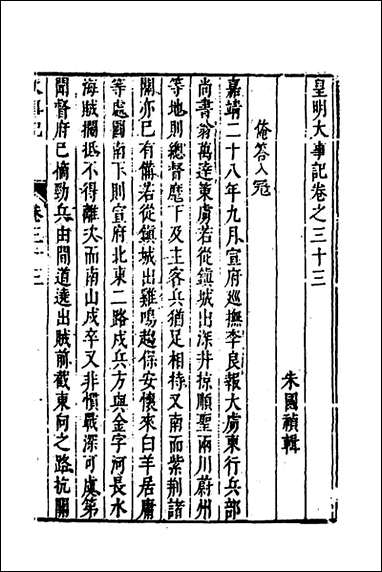 皇明大事記卷之三十三
朱國禎輯
俺答入冦
嘉靖二十八年九月宣府巡撫李良報大虜東行兵部
尚書翁萬達策虜若從鎮城出深井掠順聖兩川蔚州
等地則總督麾下及主客兵猶足相持又南而紫荆諸
關亦巳有備若從鎮城出雞鳴趨保安懷來白羊居庸
等處圖南下則宣府北東二路戍兵方與金字河長水
海賊攔抵不得離汏而南山戍卒又非慣戰深可虞第
聞督府巳摘勁兵由間道遶出賊前截東向之路抗關
大事記
卷三十三
一